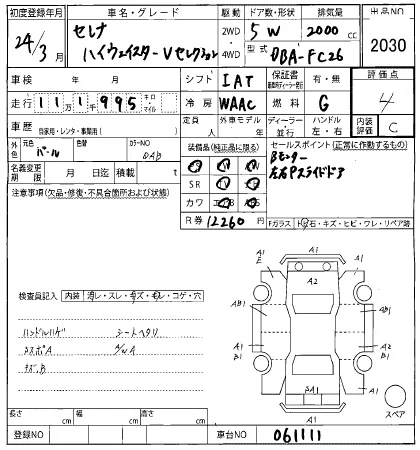 初度登録年月 車名・グレード 駆動 ドア数・形状 排気量 出品NO
24/3月 セレナ ハイウェイスター・Vセレクション 2WD・4WD 5 W 2000cc 2030
型式 DBA-FC26
車検 年 月 シフト IAT 保証書 有・無 評価点
走行 111995 キロ・マイル 冷房 WAAC 燃料 G 4
車歴 自家用・レンタ・事業用( ) 定員 人 外車モデル 年 ディーラー・並行 ハンドル 左・右 内装評価 C
外色 元色 パール 色替 カラーNO QAB
装備品(純正品に限る) セールスポイント(正常に作動するもの)
名義変更期限 月 日迄 積載 t
Bモニター
左右Pスライドドア
SR TV
カワ エアB ABS
注意事項(欠品・修復・不具合箇所および状態)
R券 12260円
Fガラス トビ石・キズ・ヒビ・ワレ・リペア跡
A1
A1
E
A2
A1
AB1
AB1
A1
B1
A2
B1
BA1
A1
A1
A1
スペア
検査員記入 内装 汚レ・スレ・キズ・モレ・コゲ・穴
ハンドルハゲ シートヘタリ
キズ、B
長さ cm 幅 cm 高さ cm
登録NO 車台NO 061111